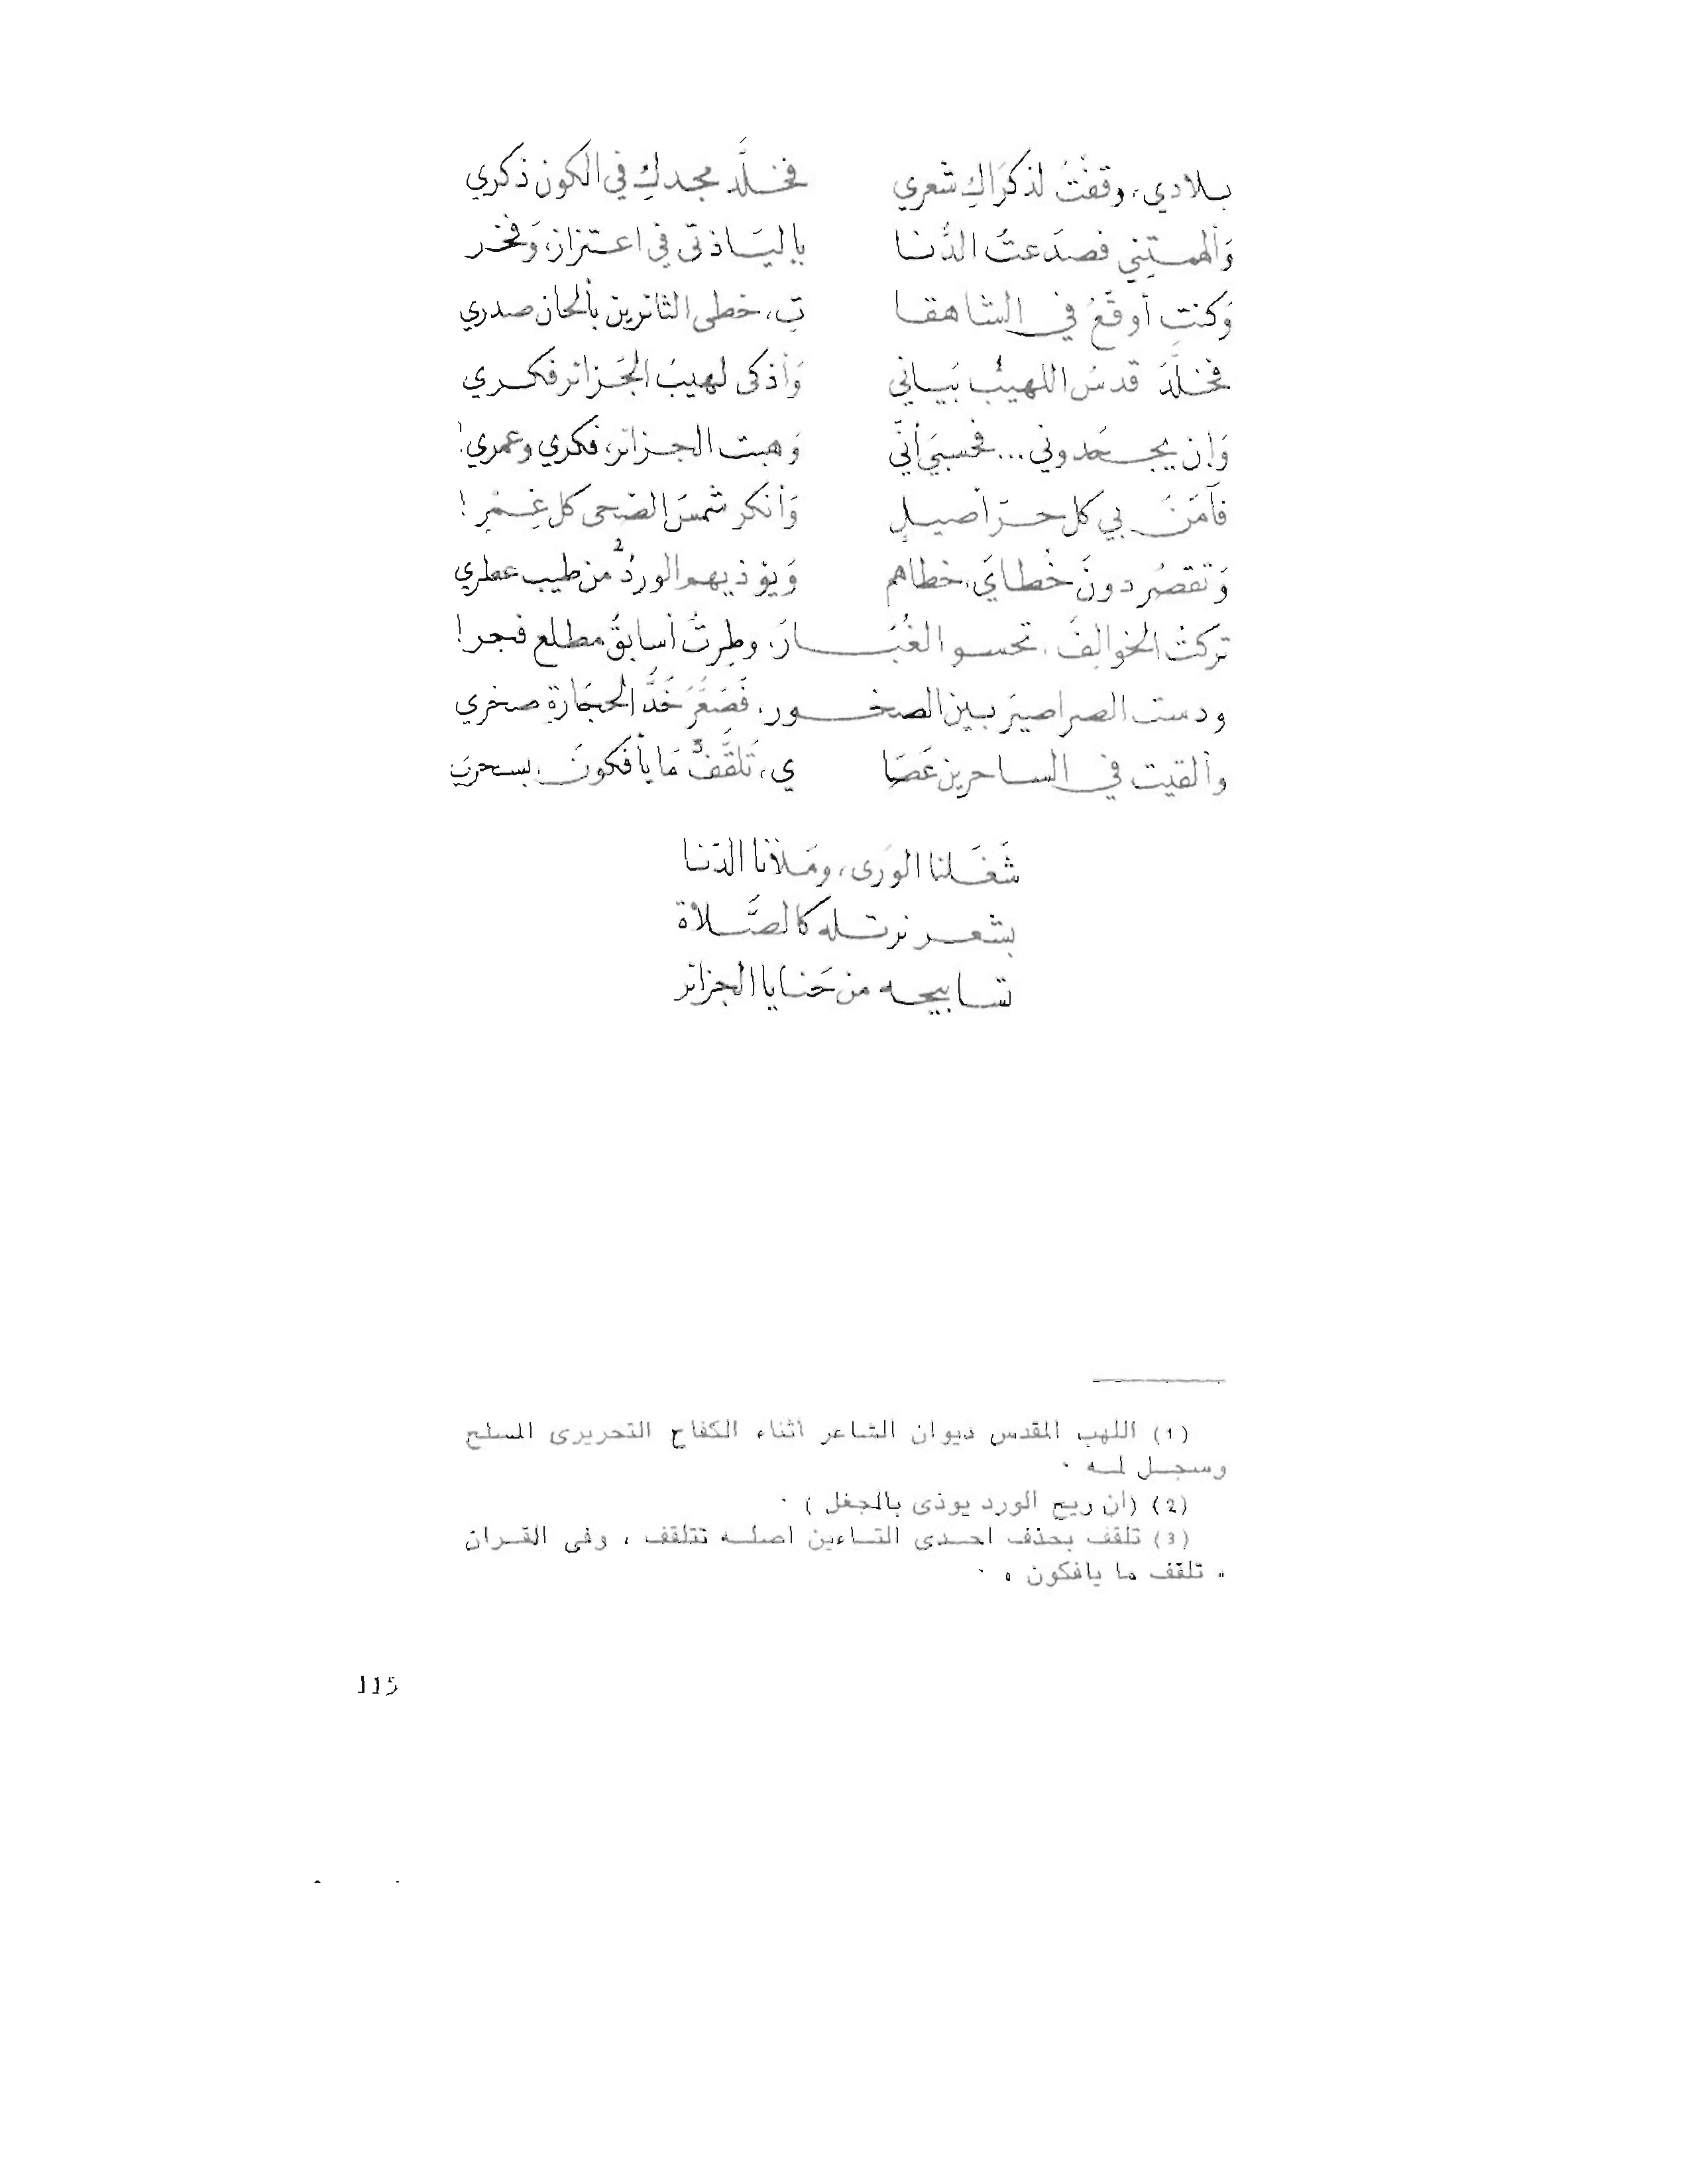 بلادي، وقفْتُ لذكرَاكِ شعري فخلَّد مجدكِ في الكون ذكري
وَألهمتِني فصدَعتُ الدُّنا بإليَاذتي في اعتزاز، وَفخر
وَكنتِ أوقّعُ في الشاهقا تِ، خطى الثائرين بألحان صدري
فخلَّدَ قدسُ اللهيب¹ بَيَاني وَأذكى لهيبُ الجَزائر فكري
وَإن يجحَدوني... فحسبيَ أنّي وَهبت الجزائر، فكري وعمري!
فآمَنَ بي كل حرّ أصيلٍ وَأنكر شمسَ الضّحى كل غِمْرِ!
وَتَقصُر دونَ خُطايَ، خطاهم وَيؤذيهم الوردُ² من طيب عطري
تركتُ الخوالِفَ، تحسو الغُبَارَ، وطِرتُ أسابقُ مطلع فجر!
ودست الصراصيرَ بين الصخور، فَصَعَّرَ خَدَّ الحجَارةِ صخري
وألقيت في الساحرين عَصَا ي، تَلَقَّفُ³ مَا يأفكونَ بسحرِ
شَغَلنا الوَرى، ومَلأنا الدّنا
بشعر نرتله كالصَّلاة
تسابيحه من حَنايا الجزائر
(1) اللهب المقدس ديوان الشاعر أثناء الكفاح التحريرى المسلح
وسجل له .
(2) (ان ريح الورد يوذى بالجعل) .
(3) تلقف بحذف احدى التاءين اصله تتلقف ، وفى القران
« تلقف ما يافكون » .
115